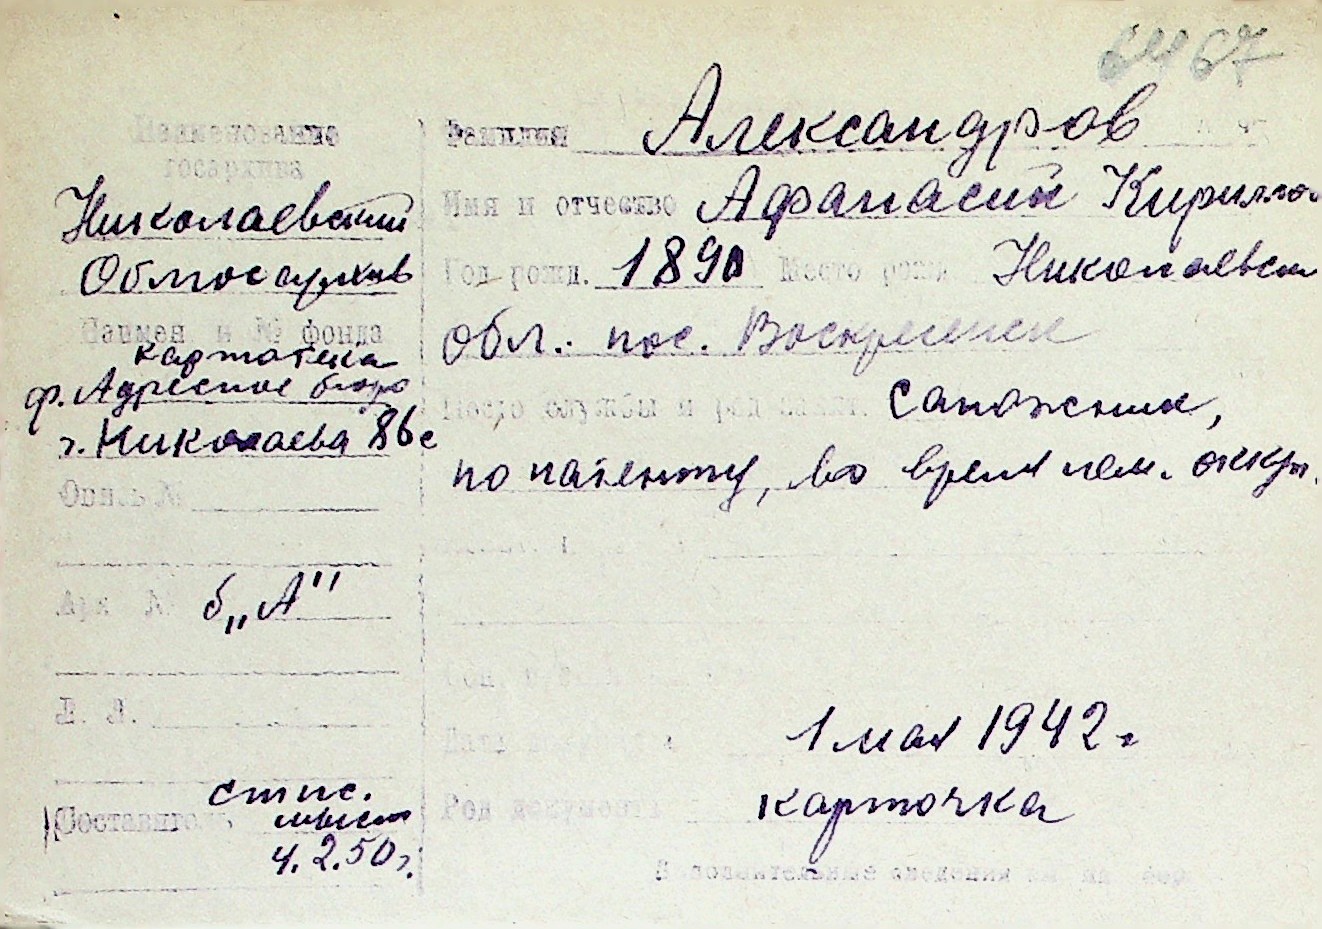 6467
Наименование
госархива
Николаевский
Облгосархив
Наимен и № фонда
картотека
ф. Адресное бюро
г. Николаева 86с
Опись №
Арх №
б „А"
Л. Л.
Составитель
4.2.50г.
Фамилия Александров
Имя и отчество Афанасий Кирилло
Год рожд. 1890 Место рожд Николаевск
Обл. пос. Воскресенск
Место службы и род занят. Сапожник,
по патенту, во время нем. оккуп.
Дата документа 1 мая 1942 г
Род документа карточка
Дополнительные сведения